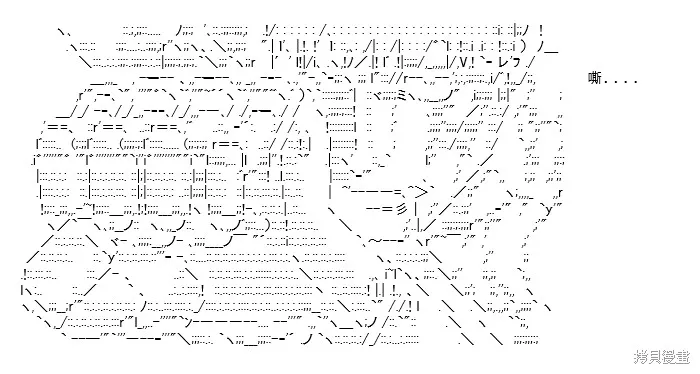 嘶....
拷贝漫畫